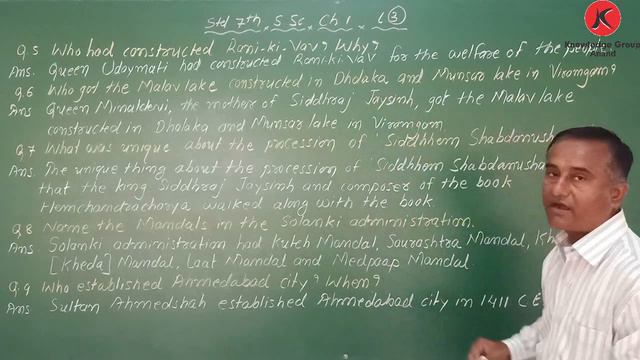 Std 7th, S.Sc, Ch 1, L ③
Q.5 Who had constructed Rani-ki-Vav? Why?
Ans. Queen Udaymati had constructed Rani-ki-Vav for the welfare of the people.
Q.6 Who got the Malav lake constructed in Dholaka and Munsar lake in Viramgam?
Ans Queen Minaldevi, the mother of Siddhraj Jaysinh, got the Malav lake
constructed in Dholaka and Munsar lake in Viramgam.
Q.7 What was unique about the procession of 'Siddhhem Shabdanush
Ans. The unique thing about the procession of 'Siddhhem Shabdanusha
that the king Siddhraj Jaysinh and composer of the book
Hemchandracharya walked along with the book.
Q.8 Name the Mandals in the Solanki administration.
Ans. Solanki administration had Kutch Mandal, Saurashtra Mandal, Kh
[Kheda] Mandal, Laat Mandal and Medpaap Mandal
Q.9 Who established Ahmedabad city? When?
Ans Sultan Ahmedshah established Ahmedabad city in 1411 CE
K
Knowledge Group
Anand